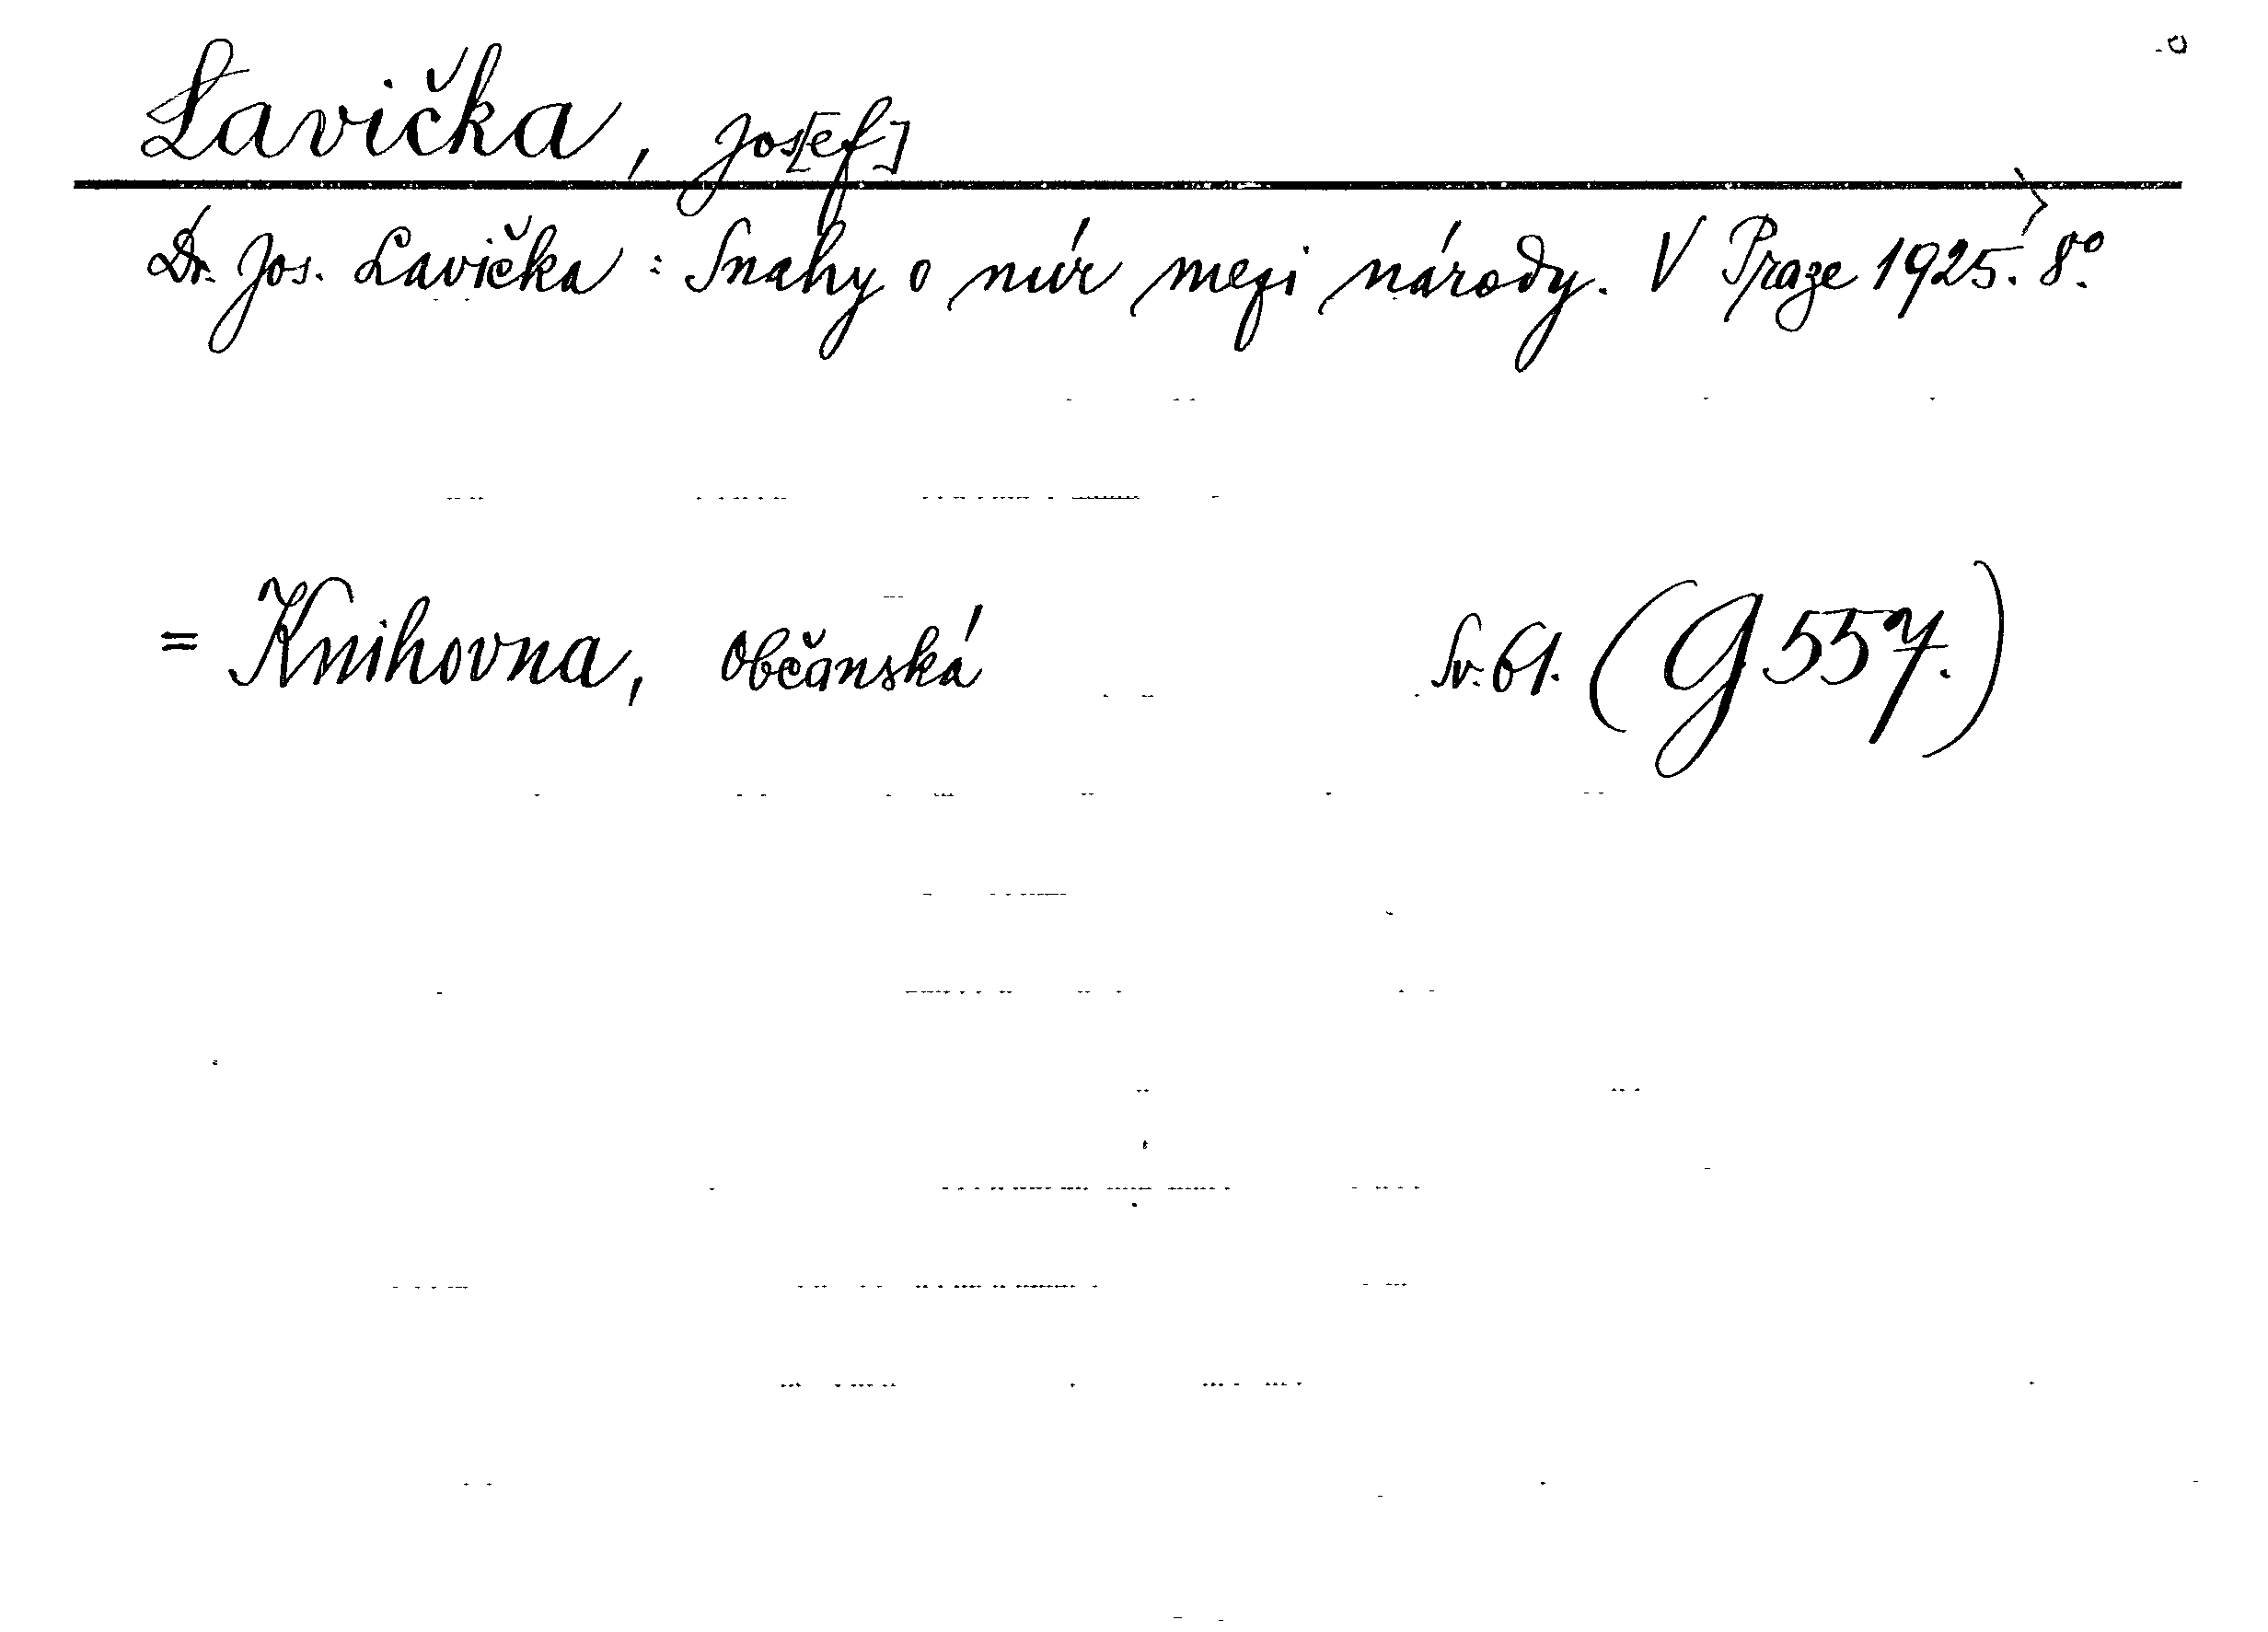 Lavička, Jos[ef]
Dr. Jos. Lavička: Snahy o mír mezi národy. V Praze 1925. 8°.
= Knihovna, občanská Sv. 61. (G 557.)